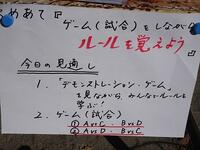 めあて『ゲーム(試合)をしながら
ルールを覚えよう
今日の見通し
1. 「デモンストレーション・ゲーム」
を見ながら、みんなでルールを
学ぶ!
2. ゲーム(試合)
① AvsC・BvsD
② AvsD・BvsC